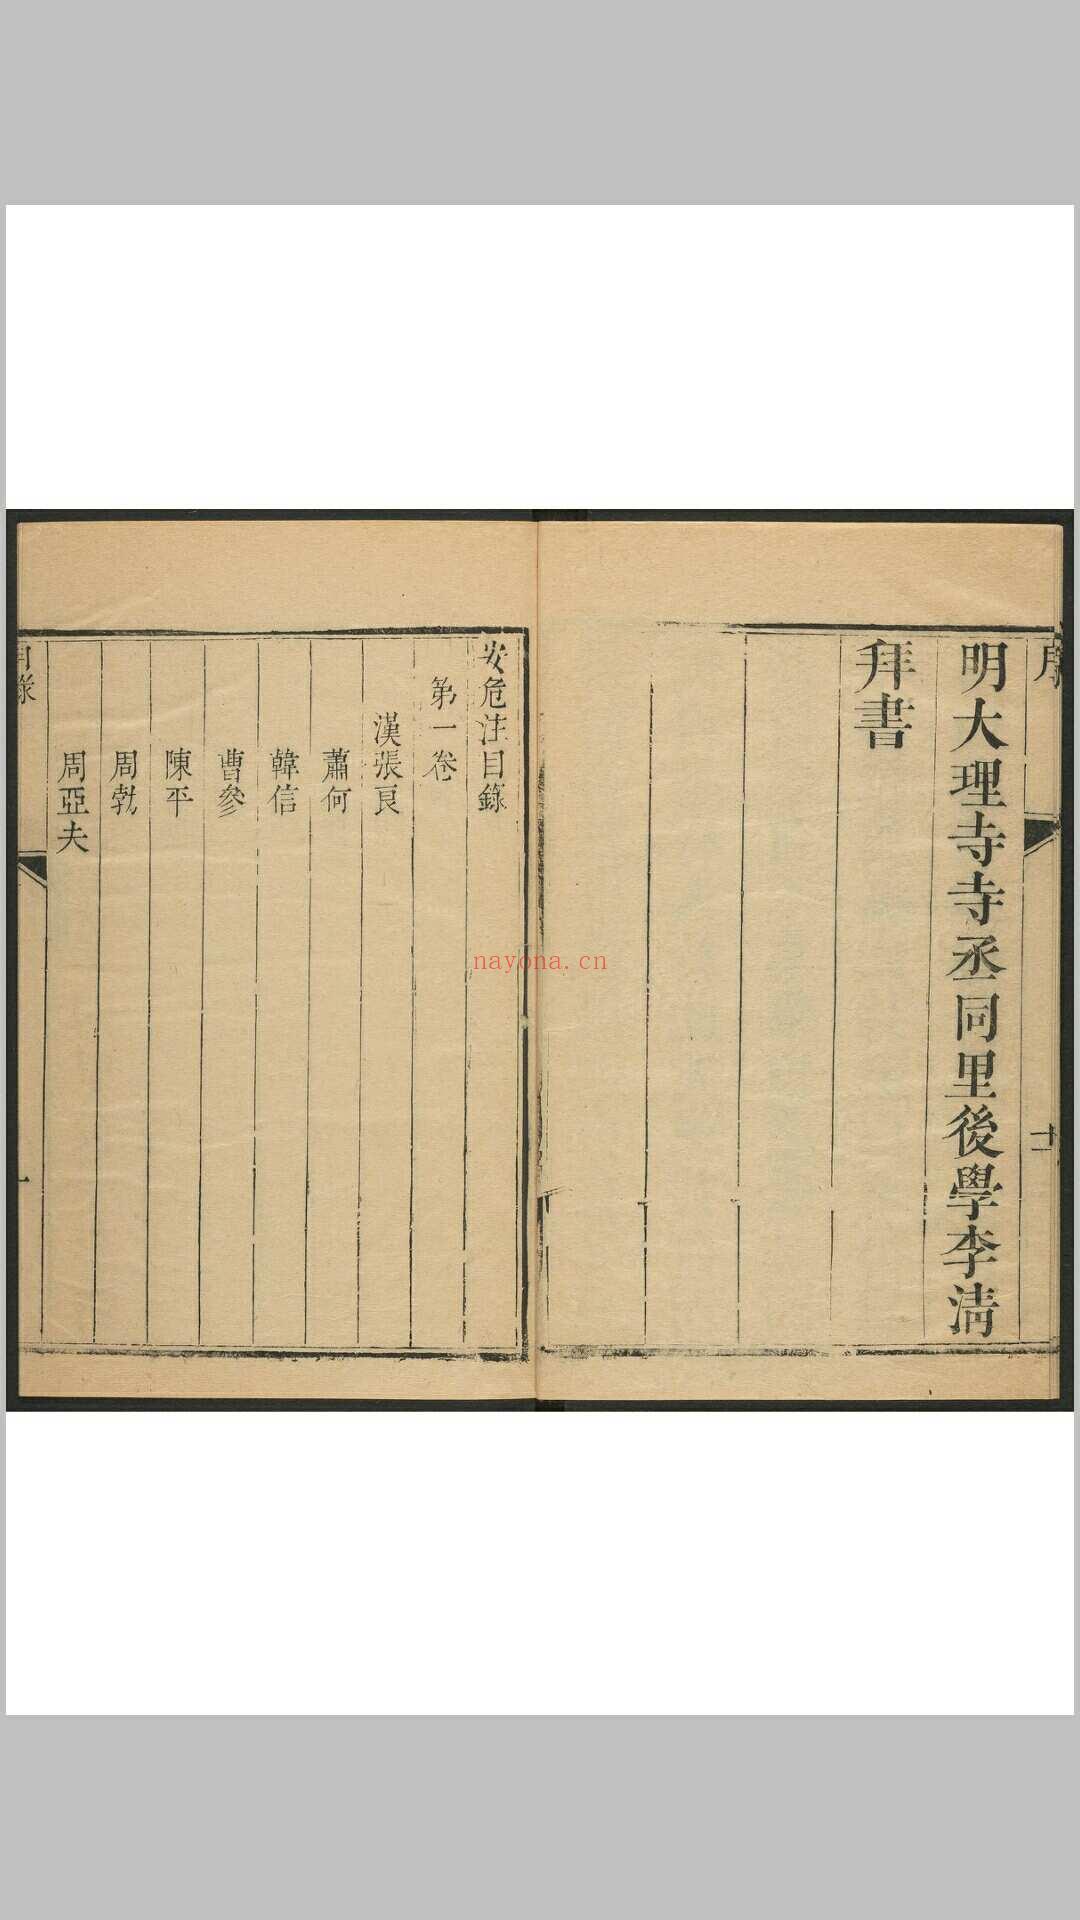 序
十一
明大理寺寺丞同里後學李清
拜書
安危注目錄
第一卷
漢張良
蕭何
韓信
曹參
陳平
周勃
周亞夫
目錄
一
nayona.cn